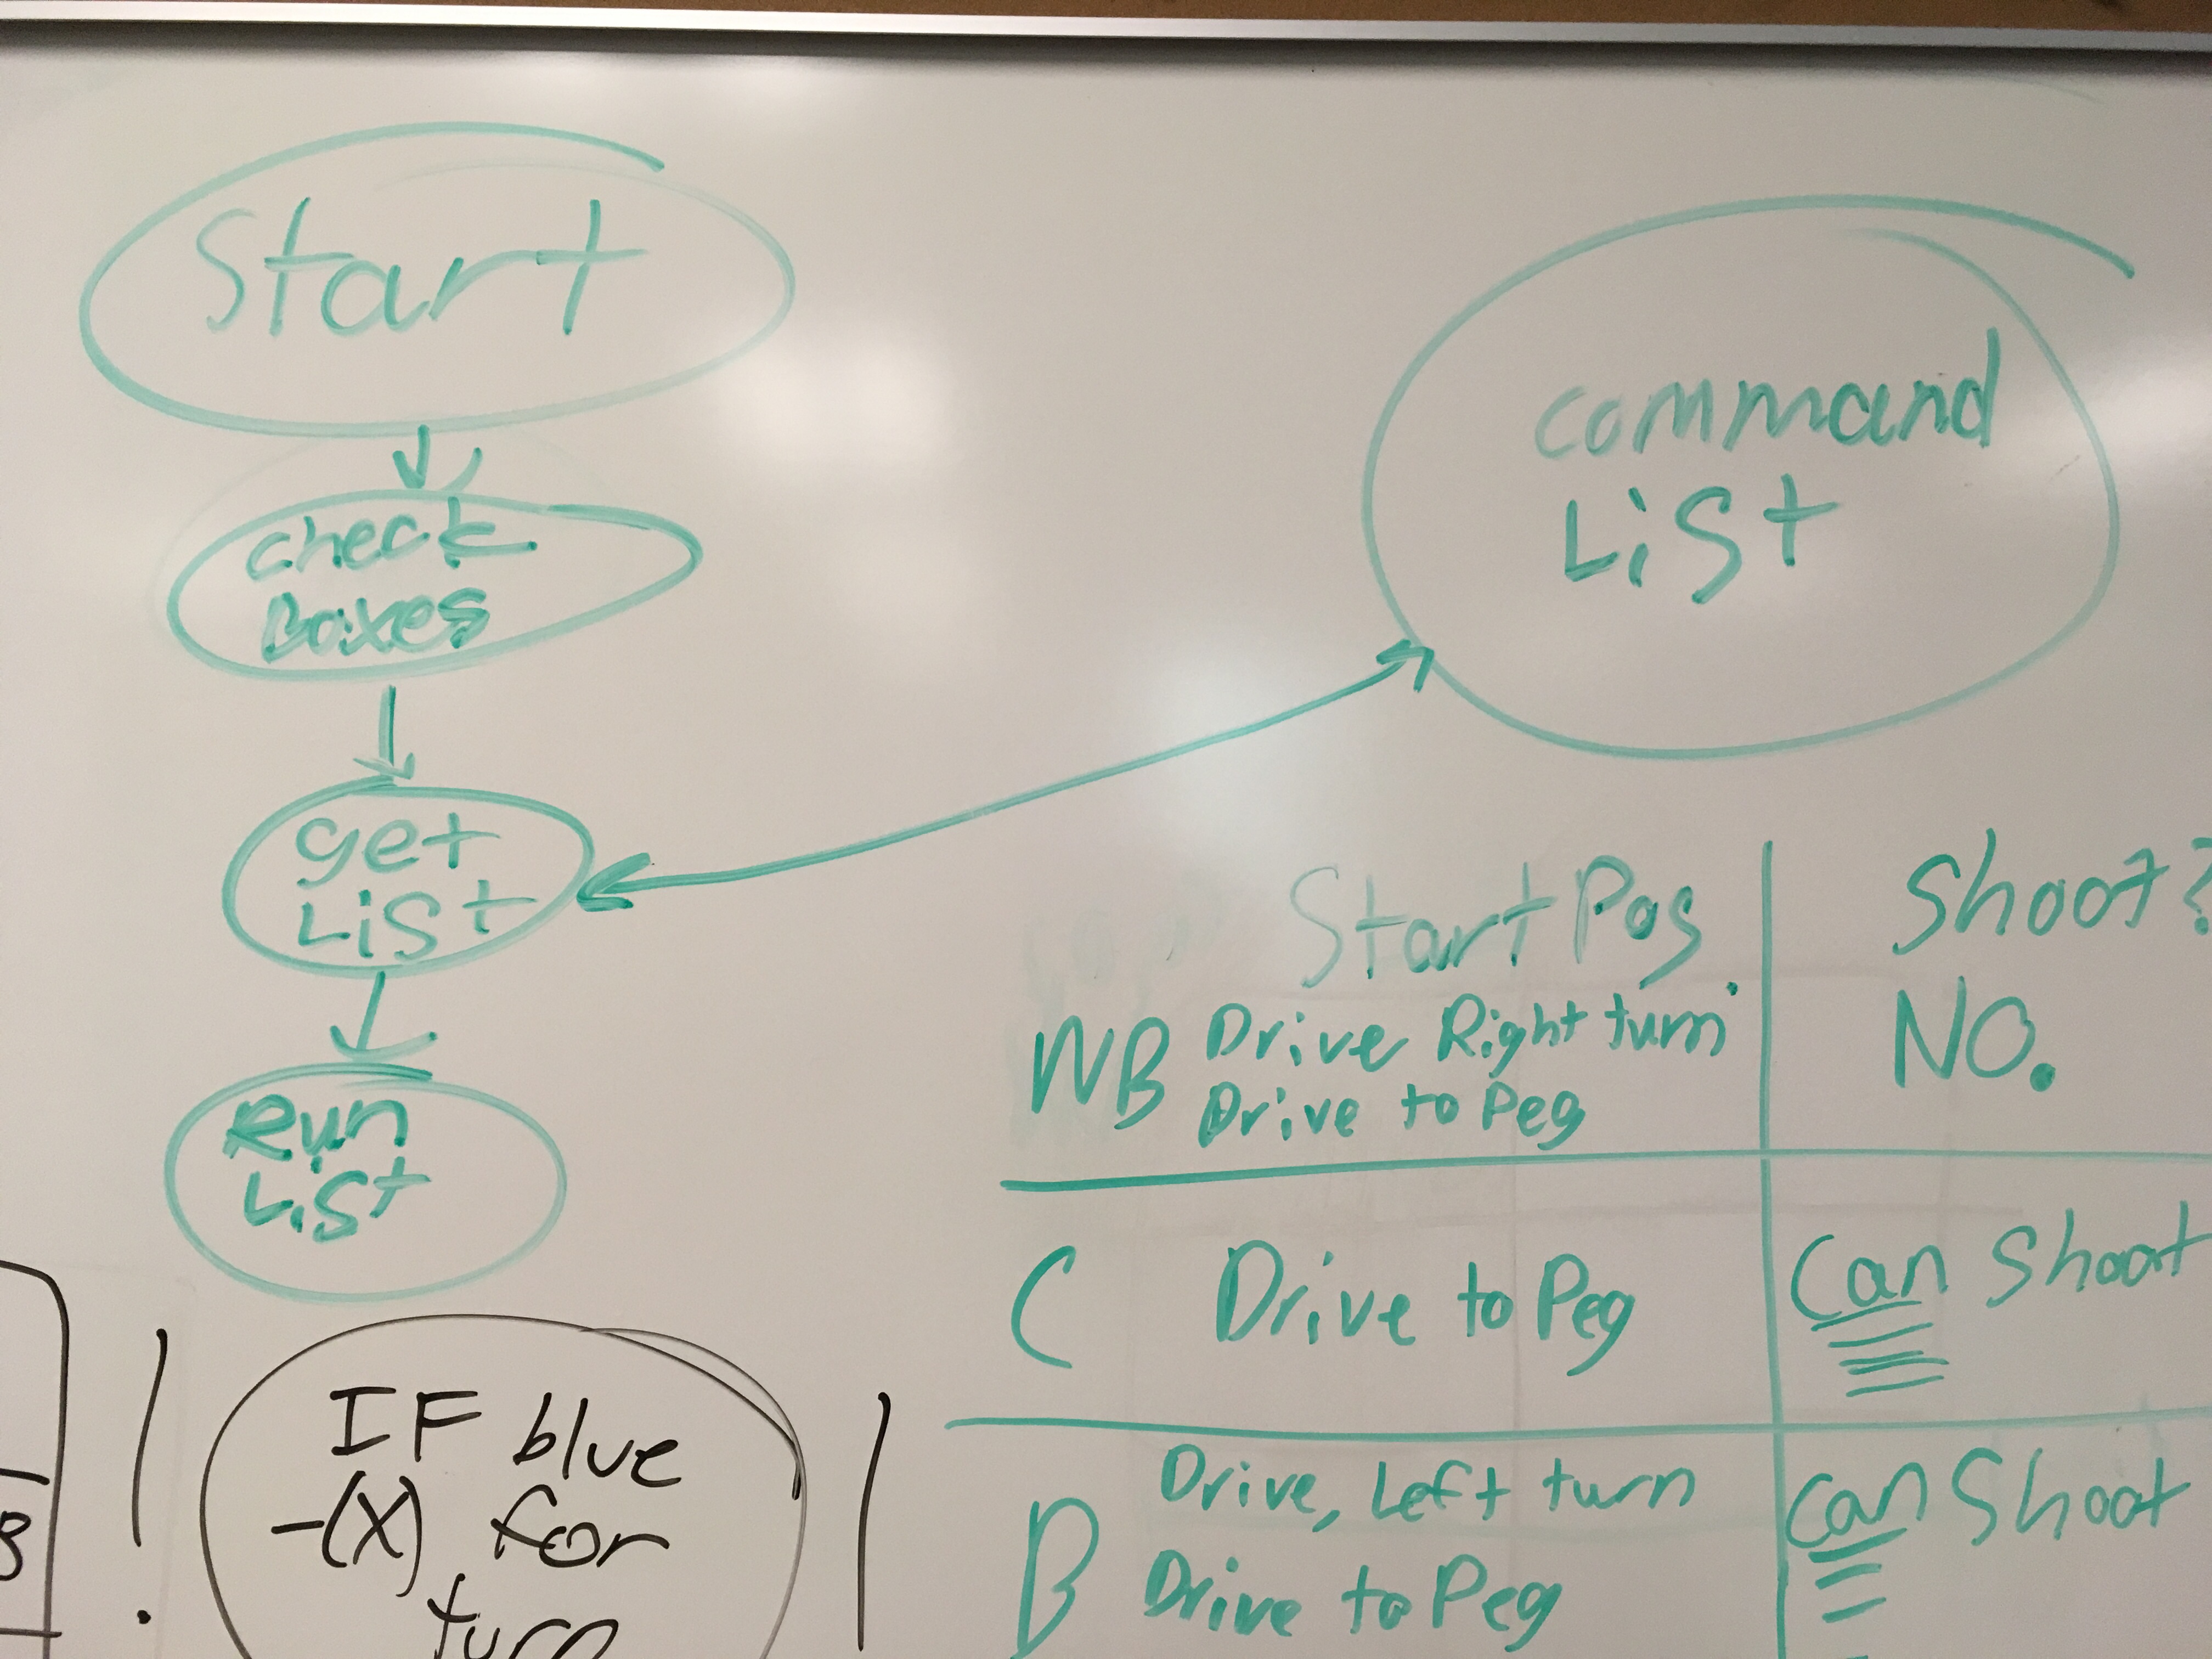 Start
check
Boxes
get
List
Run
List
command
List
Start Pos
Shoot?
NB Drive Right turn
Drive to Peg
NO.
C Drive to Peg
Can Shoot
B Drive, Left turn
Drive to Peg
Can Shoot
IF blue
-(x) for
turn
!
!